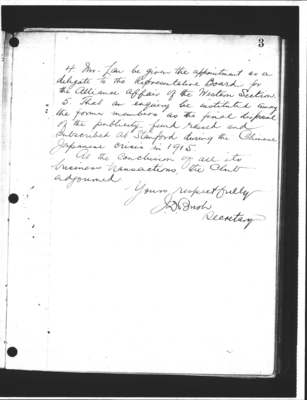 3
4. Mr. Lau be given the appointment as a
delegate to the Representative Board for
the Alliance Affair of the Western Section
5. That an enquiry be instituted among
the former members as the final disposal
of the publicity fund raised and
subscribed at Stanford during the Chinese
Japanese crisis in 1915.
At the conclusion of all its
business transactions, the Club
adjourned
Yours respectfully
Secretary